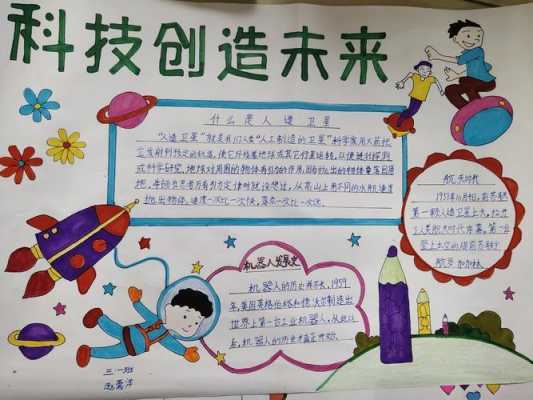 科技创造未来
什么是人造卫星
"人造卫星"就是我们人类"人工制造的卫星"科学家用火箭把
它发射到预定的轨道,使它环绕着地球或其它行星运转,以便进行探测
或科学研究。地球对周围的物体有引力的作用,因而抛出的物体要落回地
面,
抛出物体,速度一次比一次快,落点一次比一次远
航天时代
1957年10月4日,前苏联
第一颗人造卫星上天,
了人类航天时代序幕。第一位
登上太空的是前苏联宇
航员加加林
机器人发展史
机器人的历史并不长,1959
年,美国英格伯格和德沃尔制造出
世界上第一台工业机器人,从此以
后,机器人的历史才真正开始。
三·一班